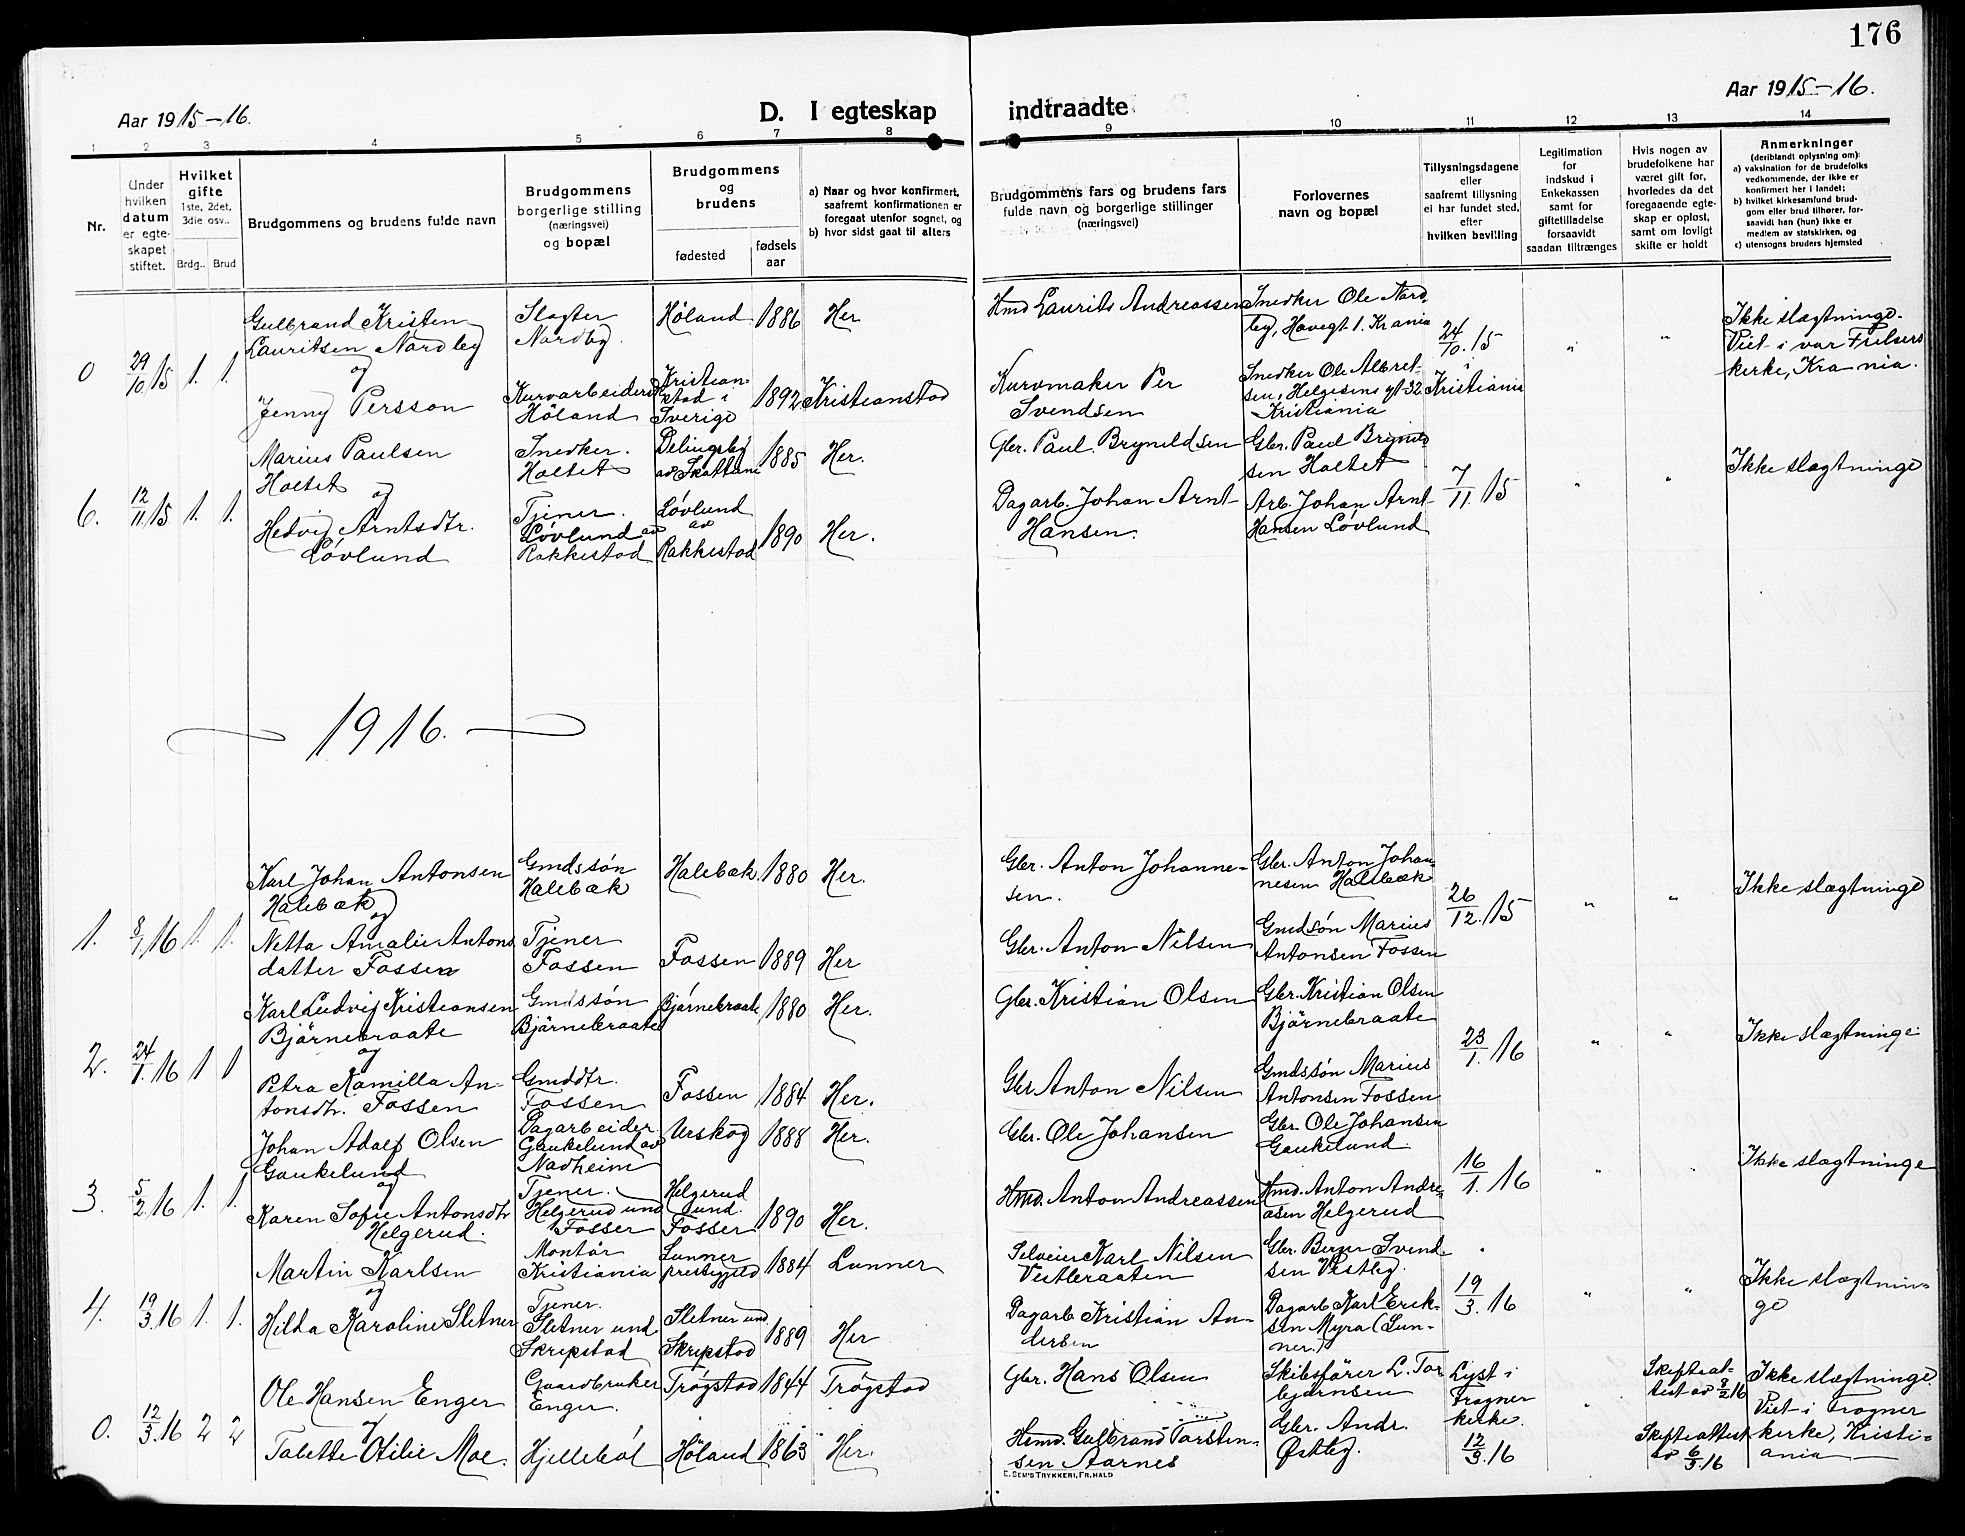 176
Aar 1915–16.
D. I egteskap indtraadte
Aar 1915–16.
1 2 3 4 5 6 7 8 9 10 11 12 13 14
Nr.
Under
hvilken
datum
er egte-
skapet
stiftet.
Hvilket
gifte
1ste, 2det,
3die osv..
Brdg.. Brud
Brudgommens og brudens fulde navn
Brudgommens
borgerlige stilling
(næringsvei)
og bopæl
Brudgommens
og
brudens
fødested
fødsels
aar
a) Naar og hvor konfirmert,
saafremt konfirmationen er
foregaat utenfor sognet, og
b) hvor sidst gaat til alters
Brudgommens fars og brudens fars
fulde navn og borgerlige stillinger
(næringsvei)
Forlovernes
navn og bopæl
Tillysningsdagene
eller
saafremt tillysning
ei har fundet sted,
efter
hvilken bevilling
Legitimation
for
indskud i
Enkekassen
samt for
giftetilladelse
forsaavidt
saadan tiltrænges
Hvis nogen av
brudefolkene har
været gift før,
hvorledes da det
foregaaende egte-
skap er opløst,
samt om lovligt
skifte er holdt
Anmerkninger
(deriblandt oplysning om):
a) vaksination for de brudefolks
vedkommende, der ikke er
konfirmert her i landet;
b) hvilket kirkesamfund brud-
gom eller brud tilhører, for-
saavidt han (hun) ikke er
medlem av statskirken, og
c) utensogns bruders hjemsted
0 29/10.15 1. 1.
Gulbrand Kristen
Lauritsen Nordby
og
Jenny Persson
Slagter
Nordby.
Kurvarbeiderske
Høland
Høland 1886 Her
Kristian-
stad i
Sverige
1892 Kristianstad
Hmd Laurits Andreassen
Kurvmaker Per
Svendsen
Snedker Ole Nord
by, Havegt 1. Krania
Snedker Ole Albret-
sen, Helgesens gt 32
Kristiania
24/10.15
i
Kristiania
" "
Ikke slægtninge.
Viet i vor Frelsers
kirke, Kra-nia.
6. 12/11.15 1. 1.
Marius Paulsen
Holtet
og
Hedvig Arntsdtr.
Løvlund
Snedker.
Holtet
Tjener.
Løvlund av
Rakkestad
Delingsby
av Skattum
1885 Her.
Løvlund
av
Rakkestad
1890 Her.
Gbr. Paul Bryneldsen
Dagarb. Johan Arnt
Hansen.
Gbr. Paul Brynild
sen Holtet
Arb. Johan Arnt
Hansen Løvlund
7/11.15
" "
Ikke slægtninge
1916.
1. 8/1.16 1. 1.
Karl Johan Antonsen
Halebæk
og
Netta Amalie Antons
datter Fossen
Gmdssøn
Halebæk
Tjener
Fossen
Halebæk. 1880 Her.
Fossen 1889 Her
Gbr. Anton Johanne-
sen.
Gbr. Anton Nilsen
Gbr. Anton Johan-
nesen Halebæk
Gmdsøn Marius
Antonsen Fossen
26/12.15
" "
Ikke slægtninge
2. 24/1.16 1 1
Karl Ludvig Kristiansen
Bjørnebraate
og
Petra Kamilla An-
tonsdtr. Fossen
Gmdssøn
Bjørnebraate
Gmddtr.
Fossen
Bjørnebraate 1880 Her.
Fossen 1884 Her.
Gbr. Kristian Olsen
Gbr Anton Nilsen
Gbr. Kristian Olsen
Bjørnebraate
Gmdssøn Marius
Antonsen Fossen
23/1.16
" "
Ikke slægtninge
3. 5/2.16 1. 1.
Johan Adolf Olsen
Gaukelund
og
Karen Sofie Antonsdtr
Helgerud.
Dagarbeider
Gaukelund av
Nadheim
Tjener.
Helgerud und
Fosser
Urskog 1888 Her.
Helgerud
und.
Fosser
1890 Her.
Gbr. Ole Johansen
Hmd. Anton Andreassen
Gbr. Ole Johansen
Gaukelund.
Hmd. Anton Andre-
asen Helgerud
16/1.16
" "
Ikke slægtninge
4. 19/3.16 1. 1.
Martin Karlsen
og
Hilda Karoline Sletner
Montør
Kristiania
Tjener.
Sletner und
Skripstad
Lunner
prestegjeld
1884 Lunner
Sletner und
Skripstad
1889 Her
Selveier Karl Nilsen
Vestbraaten
Dagarb Kristian An-
dersen
Gbr. Berger Svend-
sen Vestby.
Dagarb Karl Erik-
sen Myra (Lun-
ner.)
19/3.16
" "
Ikke slægtnin-
ge
0. 12/3.16 2 2
Ole Hansen Enger
og
Tabette Otilie Moe.
Gaardbruker
Enger.
Hjellebøl
Trøgstad 1844 Trøgstad
Høland 1863 Her.
Gbr. Hans Olsen
Hmd. Gulbrand Torsten-
sen Aarnes
Skibsfører L. Tor
bjørnsen
Gbr. Andr.
Østby.
Lyst i
Frogner
kirke.
12/3.16
"
Skifteat-
test av 8/2 16
Skifteattest
av 6/3.16
Ikke slægtninge
Viet i Frogner
kirke, Kristi-
ania
E. SEM'S TRYKKERI, FR.HALD